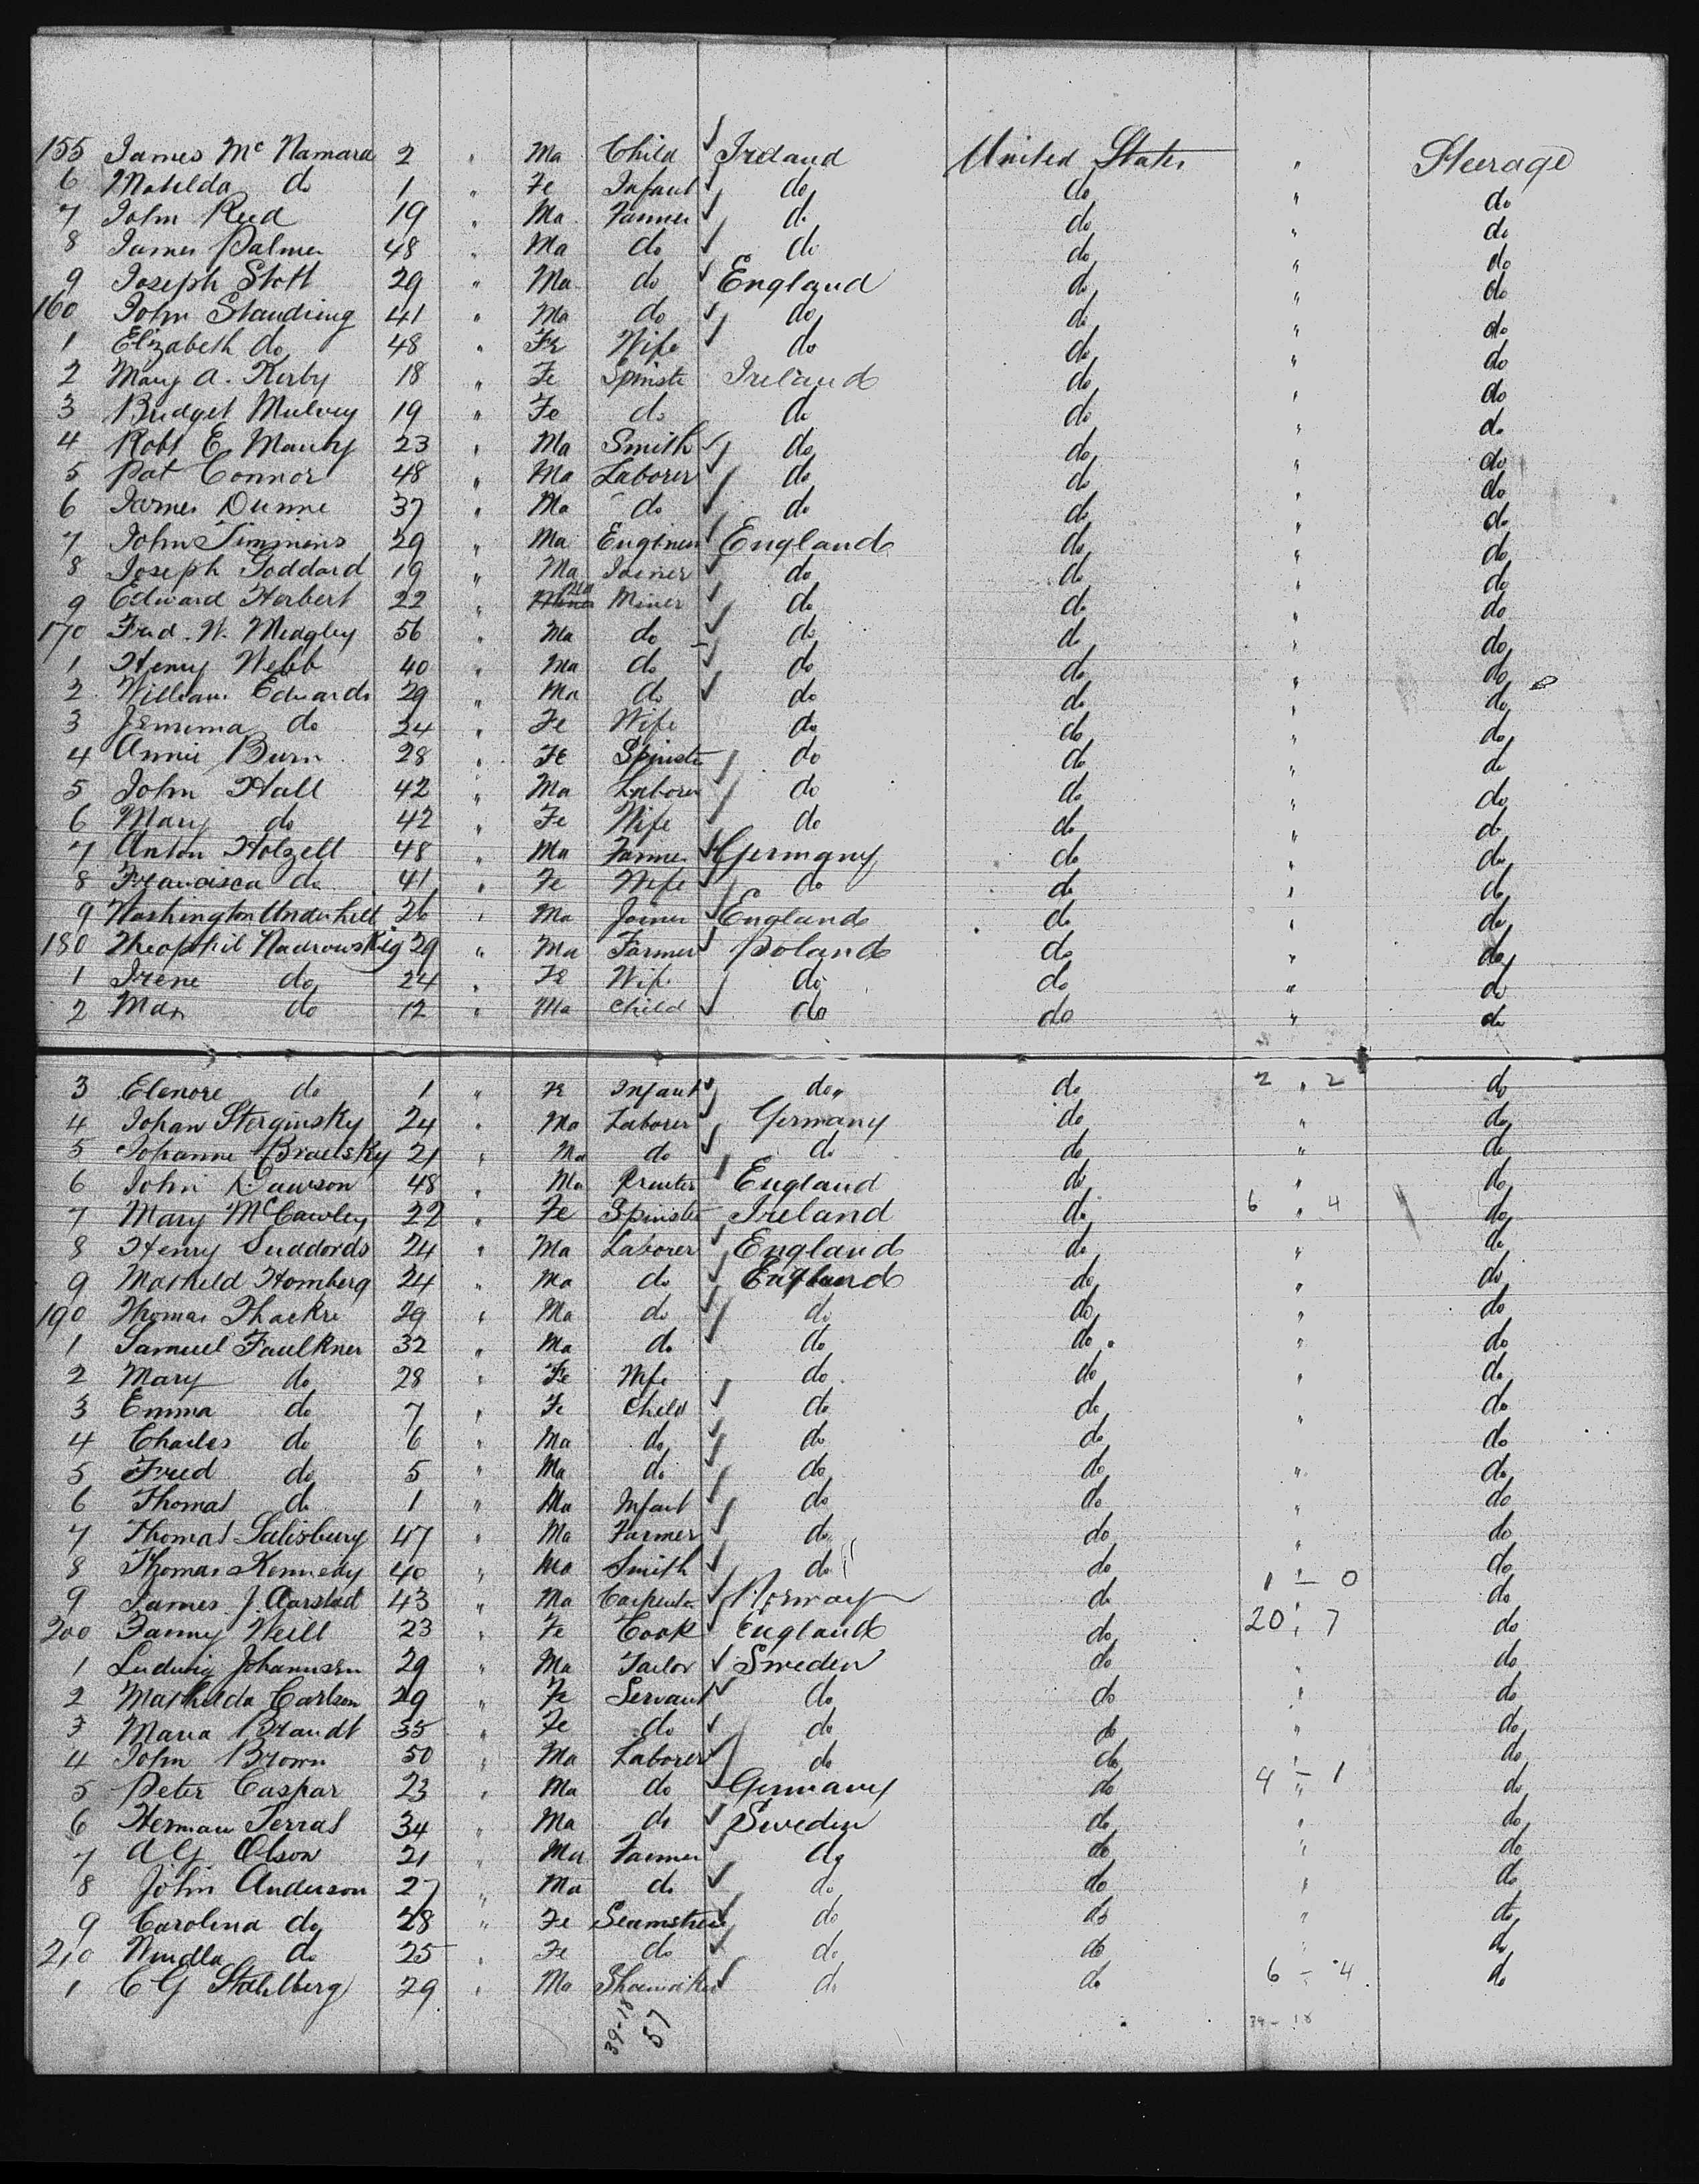 155 James Mc Namara 2 " Ma Child Ireland United States " Steerage
6 Matilda do 1 " Fe Infant do do " do
7 John Reed 19 " Ma Farmer do do " do
8 James Palmer 48 " Ma do do do " do
9 Joseph Stott 29 " Ma do England do " do
160 John Standring 41 " Ma do do do " do
1 Elizabeth do 48 " Fe Wife do do " do
2 Mary A. Kirby 18 " Fe Spinste Ireland do " do
3 Bridget Mulvey 19 " Fe do do do " do
4 Robt E 23 " Ma Smith do do " do
5 Pat Connor 48 " Ma Laborer do do " do
6 James Dunne 37 " Ma do do do " do
7 John Timmins 29 " Ma Engineer England do " do
8 Joseph Goddard 19 " Ma Joiner do do " do
9 Edward Herbert 22 " Ma Miner do do " do
170 Fred. W. Midgley 56 " Ma do do do " do
1 Henry Webb 40 " Ma do do do " do
2 William Edwards 29 " Ma do do do " do
3 Jemima do 24 " Fe Wife do do " do
4 Annie Burn 28 " Fe Spinste do do " do
5 John Hall 42 " Ma Laborer do do " do
6 Mary do 42 " Fe Wife do do " do
7 Anton Holzell 48 " Ma Farmer Germany do " do
8 Francisca do 41 " Fe Wife do do " do
9 Washington Underhill 26 " Ma Joiner England do " do
180 Theophil 29 " Ma Farmer Poland do " do
1 Irene do 24 " Fe Wife do do " do
2 Max do 12 " Ma Child do do " do
3 Elenore do 1 " Fe Infant do do 2 " 2 do
4 Johan Sterginsky 24 " Ma Laborer Germany do " do
5 Johanne 21 " Ma do do do " do
6 John Dawson 48 " Ma England do " do
7 Mary McCawley 22 " Fe Spinster Ireland do 6 " 4 do
8 Henry Suddords 24 " Ma Laborer England do " do
9 Mathild Homberg 24 " Ma do England do " do
190 Thomas Thackre 29 " Ma do do do " do
1 Samuel Faulkner 32 " Ma do do do " do
2 Mary do 28 " Fe Wife do do " do
3 Emma do 7 " Fe Child do do " do
4 Charles do 6 " Ma do do do " do
5 Fred do 5 " Ma do do do " do
6 Thomas do 1 " Ma Infant do do " do
7 Thomas Salisbury 47 " Ma Farmer do do " do
8 Thomas Kennedy 40 " Ma Smith do do " do
9 James J. Aarstad 43 " Ma Carpenter Norway do 1 - 0 do
200 Fanny Weill 23 " Fe Cook England do 20 " 7 do
1 Ludwig Johannsen 29 " Ma Tailor Sweden do " do
2 Mathilda Carlson 29 " Fe Servant do do " do
3 Maria Brandt 35 " Fe do do do " do
4 John Brown 50 " Ma Laborer do do " do
5 Peter Caspar 23 " Ma do Germany do 4 - 1 do
6 Herman 34 " Ma do Sweden do " do
7 A G Olson 21 " Ma Farmer do do " do
8 John Anderson 27 " Ma do do do " do
9 Carolina do 28 " Fe Seamstress do do " do
210 do 25 " Fe do do do " do
1 C G Stahlberg 29 " Ma Shoemaker do do 6 - 4 do
39-18
57
39 - 18